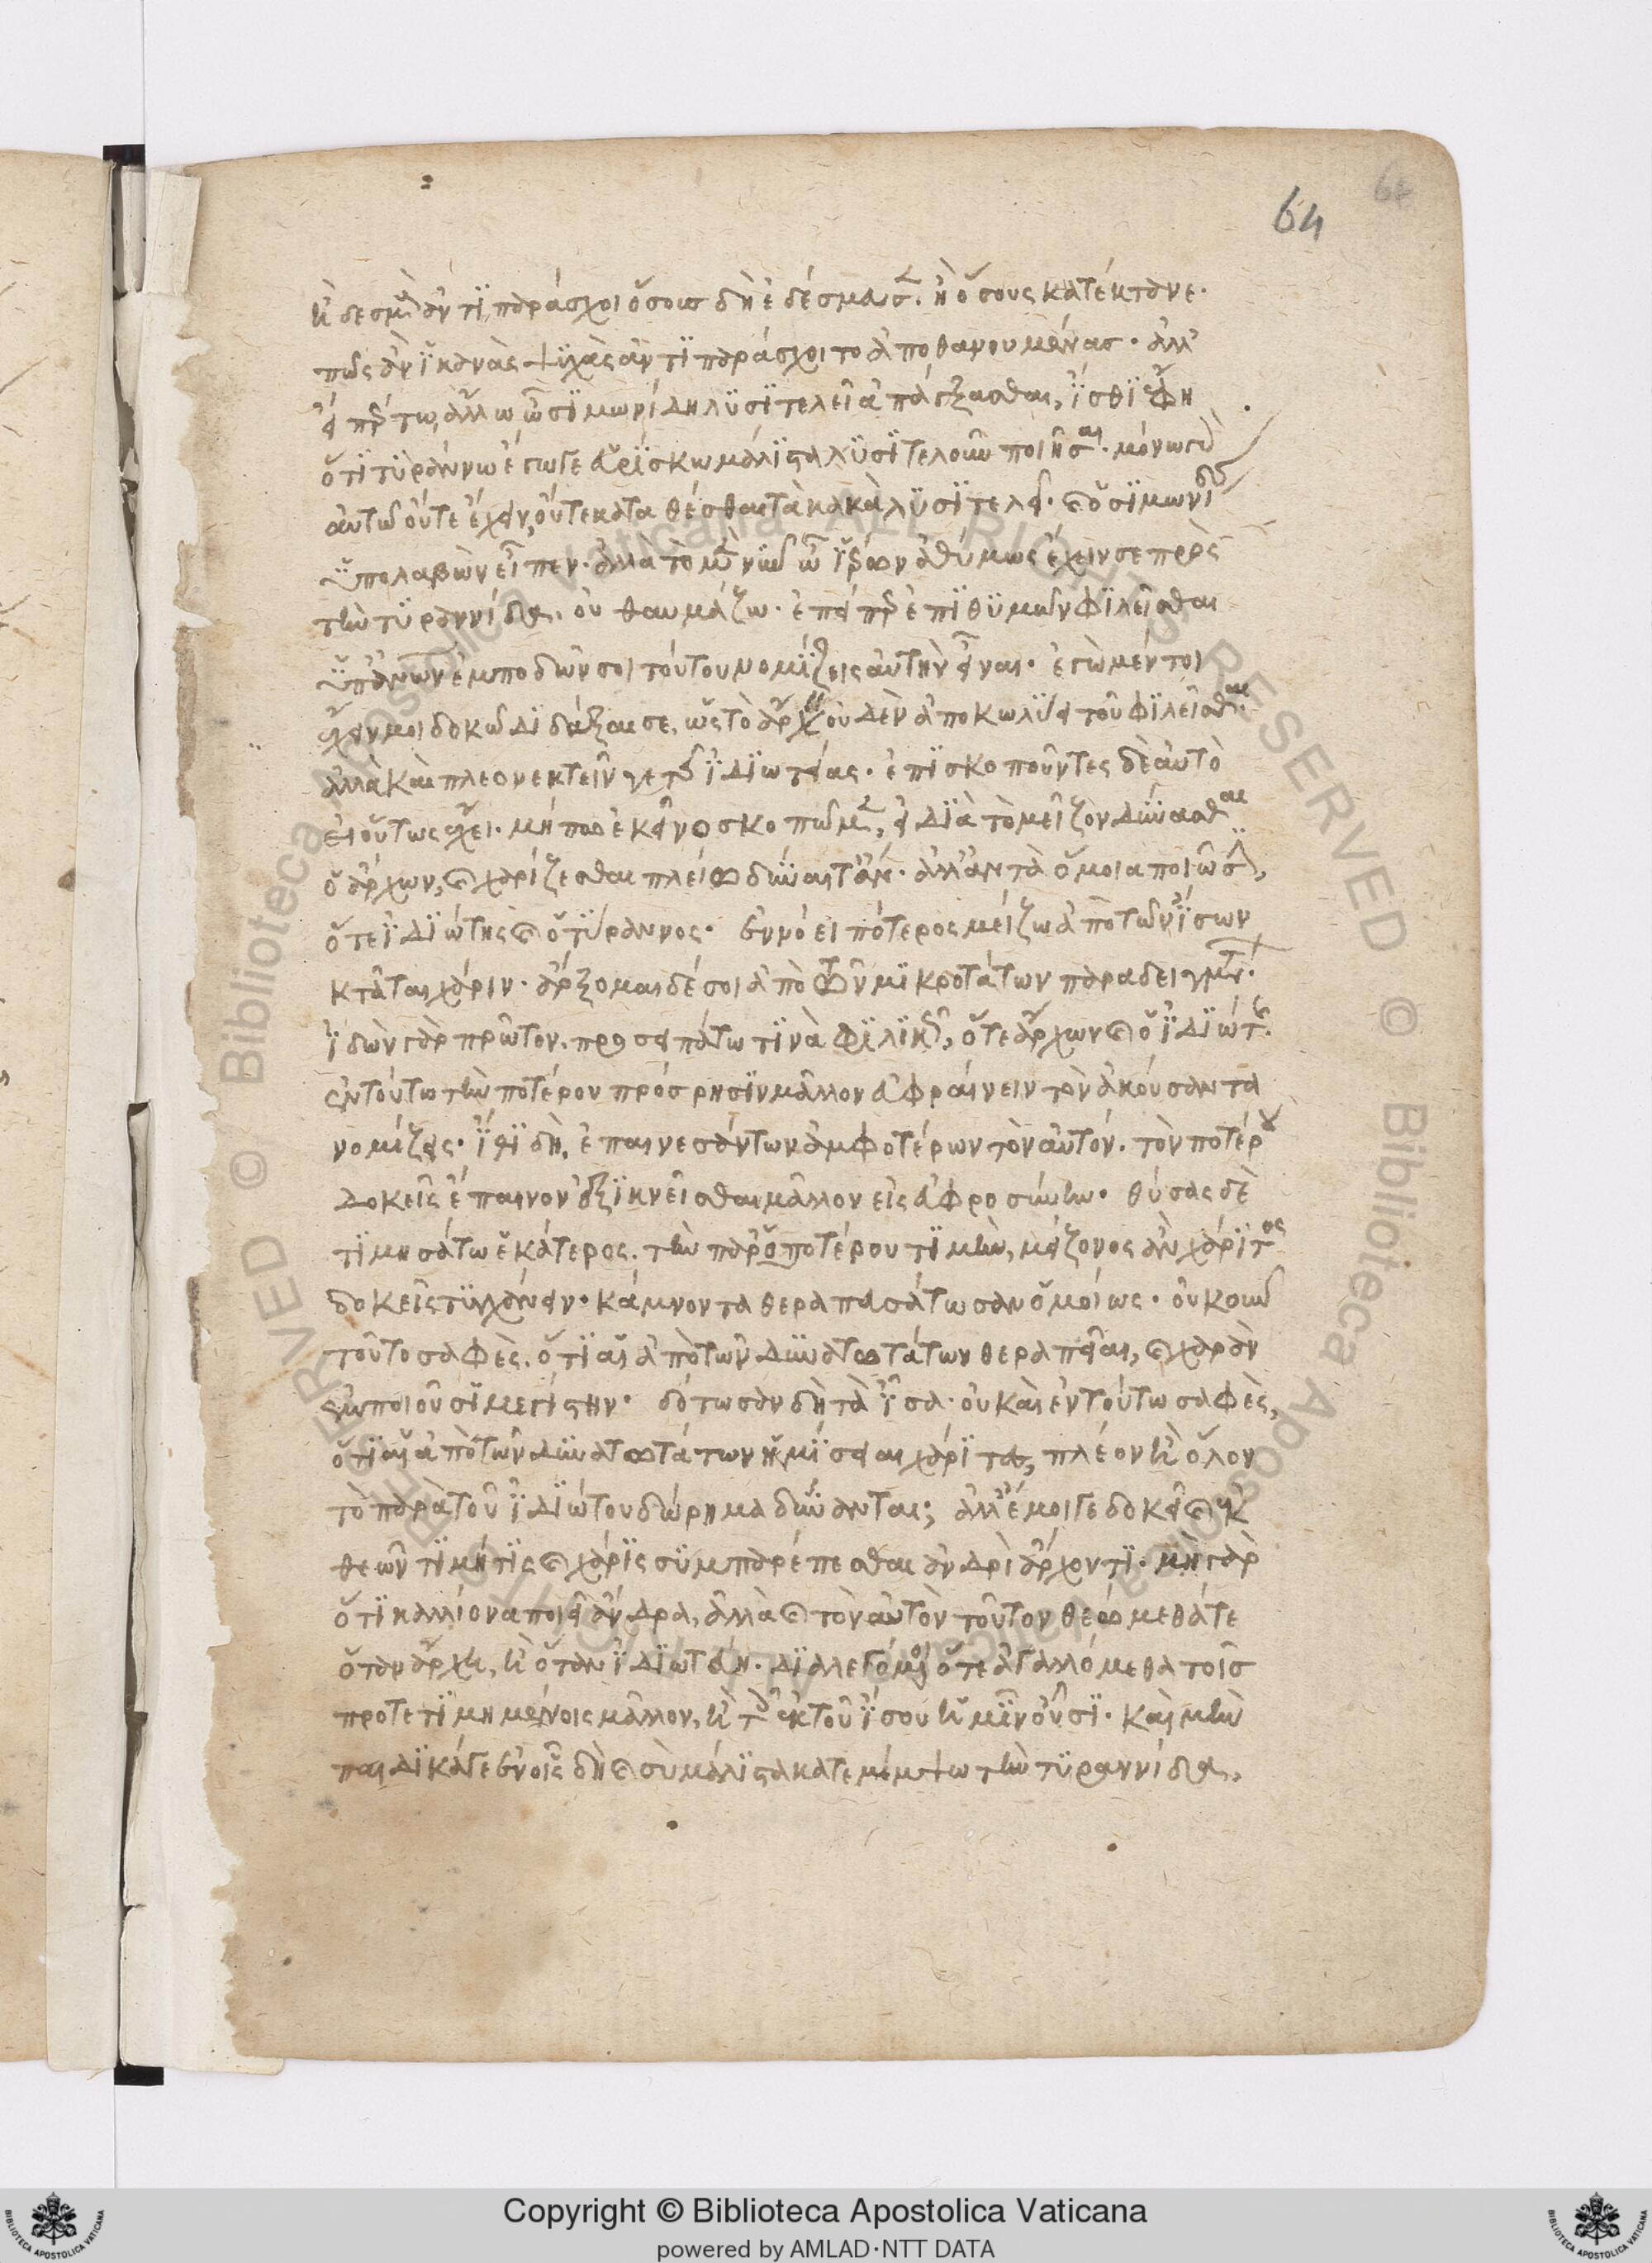 64
64
ἢ δεσμοὺς ἀντιπαράσχοι ὅσους δὴ ἐδέσμευσεν. ἢ ὅσους κατέκτανε.
πῶς ἂν ἱκανὰς ψυχὰς ἀντιπαράσχοιτο ἀποθανουμένας. ἀλλ'
εἴπερ τῳ ἄλλῳ ὦ σιμωνίδη λυσιτελεῖ ἀπάγξασθαι, ἴσθι ἔφη
ὅτι τυράννῳ ἔγωγε εὑρίσκω μάλιστα λυσιτελοῦν ποιῆσαι. μόνῳ γὰρ
αὐτῷ οὔτε ἔχειν, οὔτε καταθέσθαι τὰ κακὰ λυσιτελεῖ. καὶ ὁ σιμωνίδης
ὑπολαβὼν εἶπεν. ἀλλὰ τὸ μὲν νῦν ὦ ἱέρων ἀθύμως ἔχειν σε πρὸς
τὴν τυραννίδα, οὐ θαυμάζω. ἐπείπερ ἐπιθυμῶν φιλεῖσθαι
ὑπ' ἀνθρώπων ἐμποδών σοι τούτου νομίζεις αὐτὴν εἶναι. ἐγὼ μέντοι
ἔχειν μοι δοκῶ διδάξαι σε, ὡς τὸ ἄρχειν οὐδὲν ἀποκωλύει τοῦ φιλεῖσθαι.
ἀλλὰ καὶ πλεονεκτεῖ γε τῆς ἰδιωτείας. ἐπισκοποῦντες δὲ αὐτὸ
εἰ οὕτως ἔχει. μήπω ἐκεῖνο σκοπῶμεν, εἰ διὰ τὸ μεῖζον δύνασθαι
ὁ ἄρχων, καὶ χαρίζεσθαι πλείω δύναιτ' ἄν. ἀλλ' ἂν τὰ ὅμοια ποιῶσιν,
ὅ τε ἰδιώτης καὶ ὁ τύραννος. ἐννόει πότερος μείζω ἀπὸ τῶν ἴσων
κτᾶται χάριν. ἄρξομαι δέ σοι ἀπὸ τῶν μικροτάτων παραδειγμάτων.
ἰδὼν γὰρ πρῶτον, προσειπάτω τινὰ φιλικῶς, ὅ τε ἄρχων καὶ ὁ ἰδιώτης.
ἐν τούτῳ τὴν ποτέρου πρόσρησιν μᾶλλον εὐφραίνειν τὸν ἀκούσαντα
νομίζεις. ἴθι δὴ, ἐπαινεσάντων ἀμφοτέρων τὸν αὐτόν. τὸν ποτέρου
δοκεῖς ἔπαινον ἐξικνεῖσθαι μᾶλλον εἰς εὐφροσύνην. θύσας δὲ
τιμησάτω ἑκάτερος. τὴν παρὰ ὁποτέρου τιμὴν, μείζονος ἂν χάριτος
δοκεῖς τυγχάνειν. κάμνοντα θεραπευσάτωσαν ὁμοίως. οὐκοῦν
τοῦτο σαφὲς, ὅτι αἱ ἀπὸ τῶν δυνατωτάτων θεραπεῖαι, καὶ χαρὰν
ἐμποιοῦσι μεγίστην. δότωσαν δὴ τὰ ἴσα. οὐ καὶ ἐν τούτῳ σαφὲς,
ὅτι αἱ ἀπὸ τῶν δυνατωτάτων ἡμίσειαι χάριτες, πλέον ἢ ὅλον
τὸ παρὰ τοῦ ἰδιώτου δώρημα δύνανται; ἀλλ' ἔμοιγε δοκεῖ καὶ ἐκ
θεῶν τιμή τις καὶ χάρις συμπαρέπεσθαι ἀνδρὶ ἄρχοντι. μὴ γὰρ
ὅτι καλλίονα ποιεῖ ἄνδρα, ἀλλὰ καὶ τὸν αὐτὸν τοῦτον θεώμεθά τε
ὅταν ἄρχῃ, ἢ ὅταν ἰδιωτεύῃ. διαλεγόμενοί τε ἀγαλλόμεθα τοῖς
προτετιμημένοις μᾶλλον, ἢ τοῖς ἐκ τοῦ ἴσου ἡμῖν οὖσι. καὶ μὴν
παιδικά γε ἐν οἷς δὴ καὶ σὺ μάλιστα κατεμέμψω τὴν τυραννίδα,
Copyright © Biblioteca Apostolica Vaticana
powered by AMLAD·NTT DATA